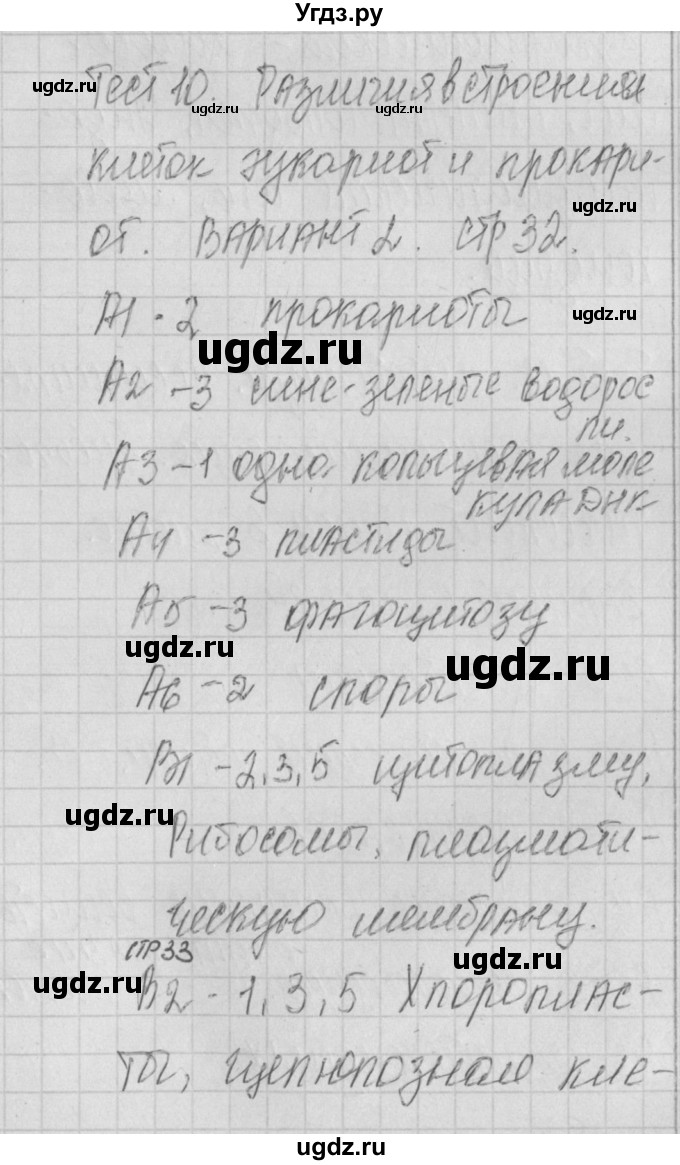 Угдз.ру
Тест 10. Различия в строении
клеток эукариот и прокари-
от. Вариант 2. стр 32.
А1 - 2 прокариоты
А2 - 3 сине-зеленые водорос
ли.
А3 - 1 одна кольцевая моле
кула ДНК
А4 - 3 пластиды
А5 - 3 фагоцитозу
А6 - 2 споры
В1 - 2, 3, 5 цитоплазму,
Рибосомы, плазмати-
ческую мембрану.
стр 33
В2 - 1, 3, 5 Хлороплас-
ты, целлюлозная кле-
ugdz.ru
ugdz.ru
ugdz.ru
ugdz.ru
ugdz.ru
ugdz.ru
ugdz.ru
ugdz.ru
ugdz.ru
ugdz.ru
ugdz.ru
ugdz.ru
ugdz.ru